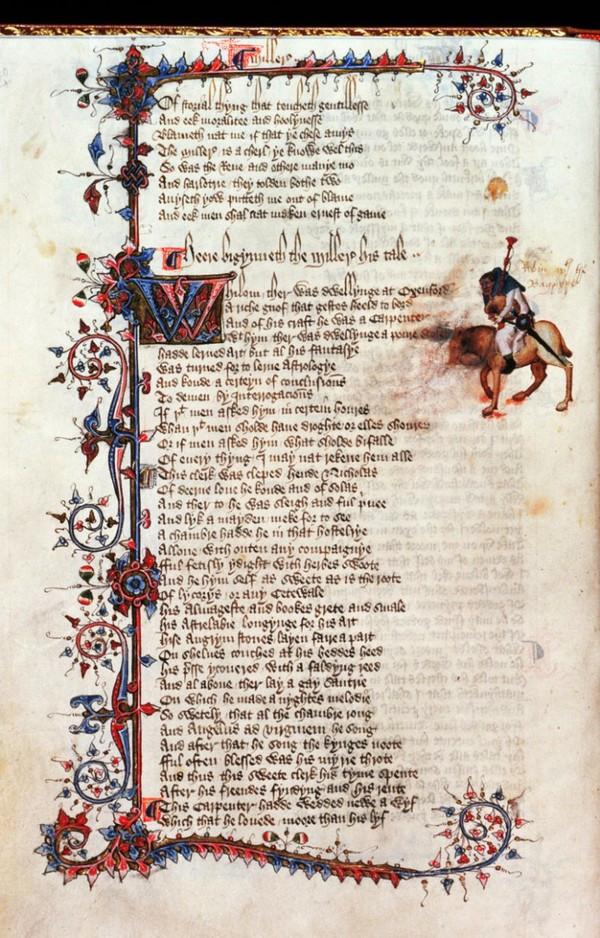 Miller
Of storial thyng that toucheth gentillesse
And eek moralitee and hoolynesse
Blameth nat me if that ye chese amys
The Millere is a cherl ye knowe wel this
So was the Reve and othere manye mo
And harlotrie they tolden bothe two
Avyseth yow putteth me out of blame
And eek men shal nat maken ernest of game
Heere bigynneth the Millere his tale
Whilom ther was dwellynge at Oxenford
A riche gnof that gestes heeld to bord
And of his craft he was a Carpenter
With hym ther was dwellynge a poure
hadde lerned art but al his fantasye
Was turned for to lerne Astrologye
And koude a certeyn of conclusions
To demen by Interrogacions
If þt men asked hym in certein houres
Whan þt men sholde have droghte or elles shoures
Or if men asked hym what sholde bifalle
Of every thyng I may nat rekene hem alle
This clerk was cleped hende Nicholas
Of deerne love he koude and of solas
And ther to he was sleigh and ful privee
And lyk a mayden meke for to see
A chambre hadde he in that hostelrye
Allone with outen any compaignye
fful fetisly ydight with herbes swoote
And he hym self as sweete as is the roote
Of lycorys or any Cetewale
his Almageste and bookes grete and smale
his Astrelabie longynge for his art
hise Augrym stones layen faire a part
On shelves couched at his beddes heed
his presse ycovered with a faldyng reed
And al above ther lay a gay Sautrie
On which he made a nyghtes melodie
So swetely that al the chambre rong
And Angelus ad virginem he song
And after that he song the kynges noote
fful often blessed was his myrie throte
And thus this sweete clerk his tyme spente
After his freendes fyndyng and his rente
This Carpenter hadde wedded newe a wyf
Which that he lovede moore than his lyf